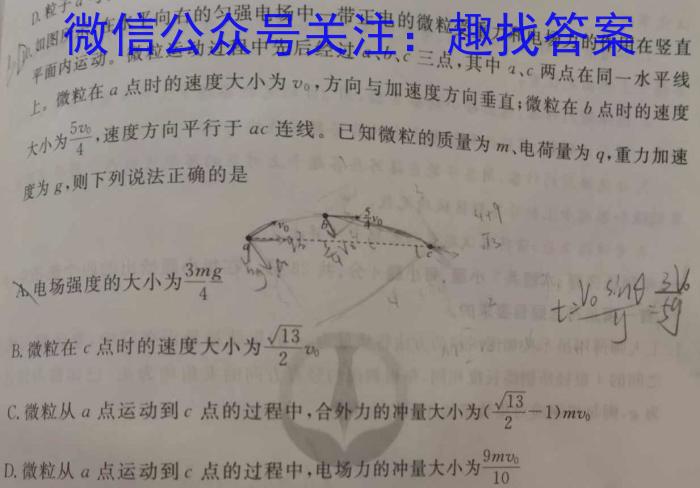 D.粒子
微信公众号关注：趣找答案
如图所
水平向右的匀强电场中，一带正电的微粒
在竖直
平面内运动。微粒运动过程中先后经过a、b、c三点，其中a、c两点在同一水平线
上。微粒在a点时的速度大小为v₀，方向与加速度方向垂直；微粒在b点时的速度
大小为5v₀/4，速度方向平行于ac连线。已知微粒的质量为m、电荷量为q，重力加速
度为g，则下列说法正确的是
a
v₀
b
c
4+9
t=
A.电场强度的大小为3mg/4
B.微粒在c点时的速度大小为√13/2 v₀
C.微粒从a点运动到c点的过程中，合外力的冲量大小为(√13/2-1)mv₀
D.微粒从a点运动到c点的过程中，电场力的冲量大小为9mv₀/10